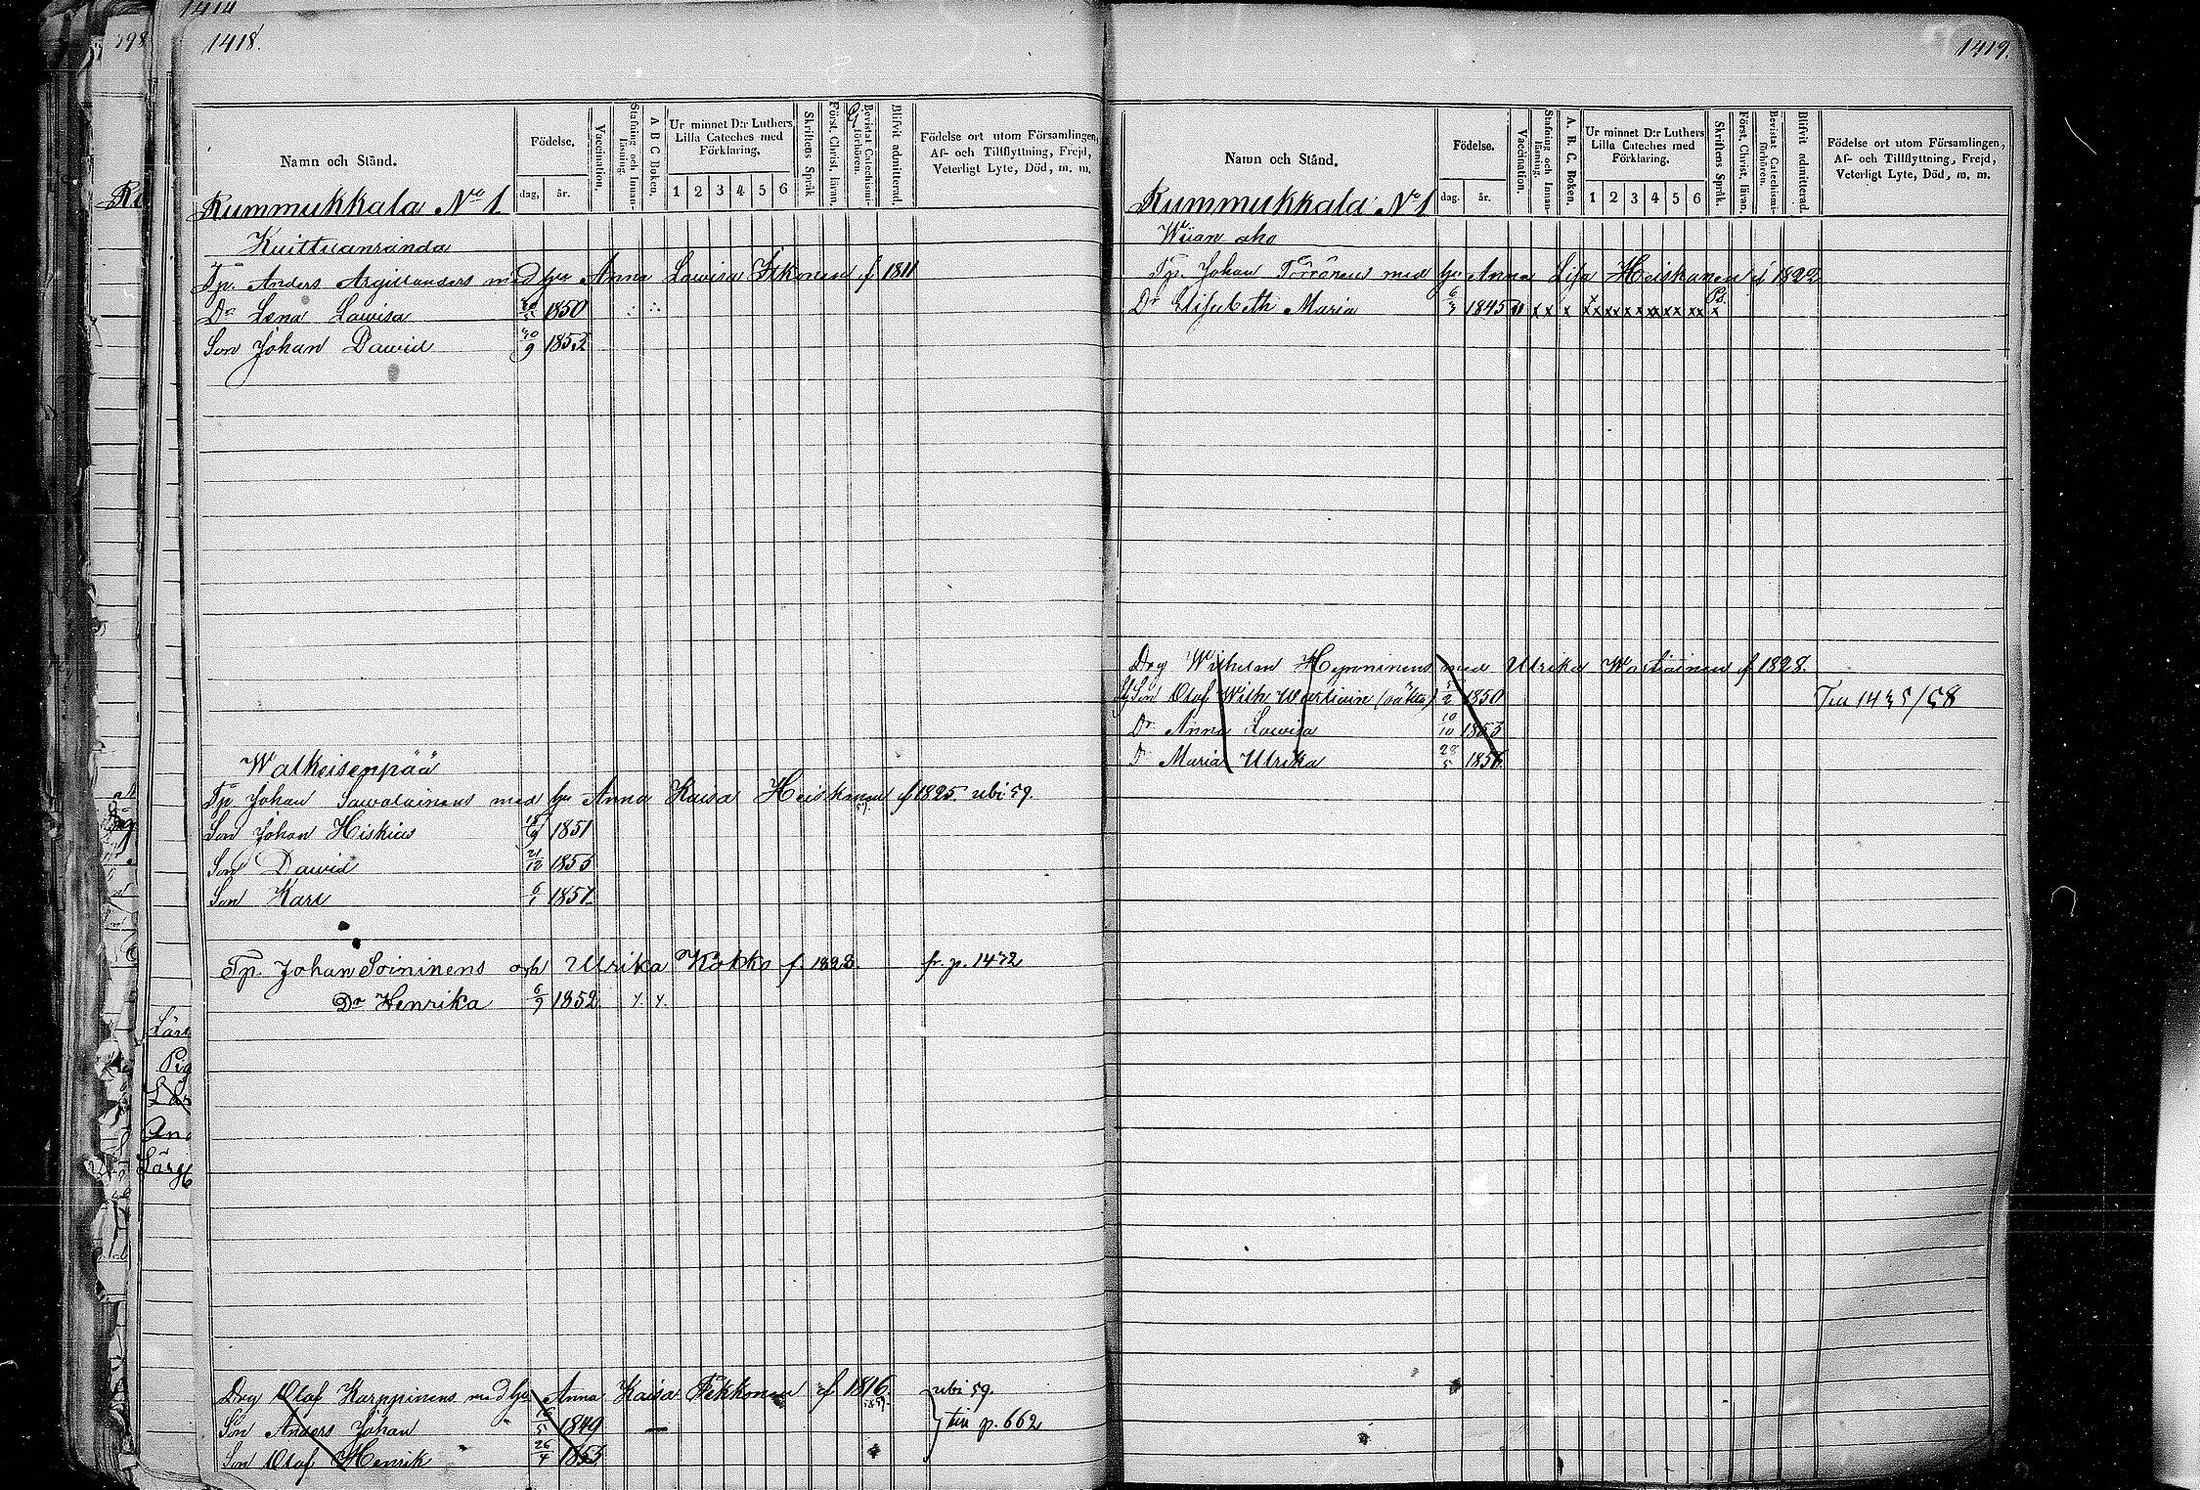 1414
1418.
Namn och Stånd.
Födelse.
dag, år.
Vaccination.
Stafning och Innanläsning.
A B C Boken.
Ur minnet D:r Luthers Lilla Cateches med Förklaring.
1 2 3 4 5 6
Skriftens Språk
Först. Christ. läran.
Bevistat Catechismiförhören.
Blifvit admitterad.
Födelse ort utom Församlingen,
Af- och Tillflyttning, Frejd,
Veterligt Lyte, Död, m. m.
Rummukkala No 1
Kuittuanranda
Tp. Anders Argillanders med hu Anna Lowisa Itkonen f 1811
Dr Lena Lowisa 1850
Son Johan Dawid 30/9 1853
Walkeisenpää
Tp. Johan Sawolainens med hu Anna Kaisa Heiskanen f 1825. ubi 59.
Son Johan Hiskias 1851
Son Dawid 21/12 1853
Son Karl 6/1 1857
Tp. Johan Soininens och Ulrika Kokko f. 1828. fr. p. 1472
Dr Henrika 6/9 1852
Drg Olof Karppinens med hu Anna Kaisa Pekkonen f 1816 ubi 59.
Son Anders Johan 1849 till p. 662
Son Olof Henrik 26/4 1853
1419.
Namn och Stånd.
Födelse.
dag, år.
Vaccination.
Stafning och Innanläsning.
A. B. C. Boken.
Ur minnet D:r Luthers Lilla Cateches med Förklaring.
1 2 3 4 5 6
Skriftens Språk.
Först. Christ. läran.
Bevistat Catechismiförhören.
Blifvit admitterad.
Födelse ort utom Församlingen,
Af- och Tillflyttning, Frejd,
Veterligt Lyte, Död, m. m.
Rummukkala No 1
Wiian aho
Tp. Johan Törrönens med hu Anna Lisa Heiskanen f 1822
Dr Elisabeth Maria 1845 xx x x xx xx xx xx xx x
Drg Wilhelm Hyvninens med Ulrika Wartiainen f 1828.
Son Olof Wilh Wartiain 1850 Till 1435/58
Dr Anna Lowisa 10/10 1853
Dr Maria Ulrika 28/5 1856